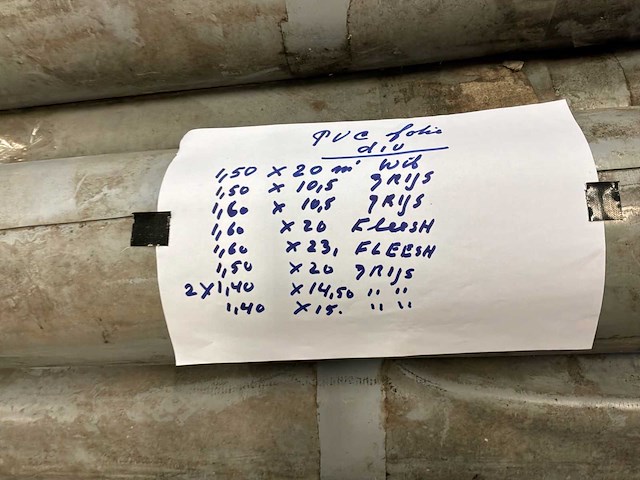 PVC folie
div
1,50 x 20 m' Wit
1,50 x 10,5 gRIJS
1,60 x 10,5 gRIJS.
1,60 x 20 FLeesH
1,60 x 23, FLEESH
1,50 x 20 gRIJS
2 x 1,40 x 14,50 " "
1,40 x 15. " "